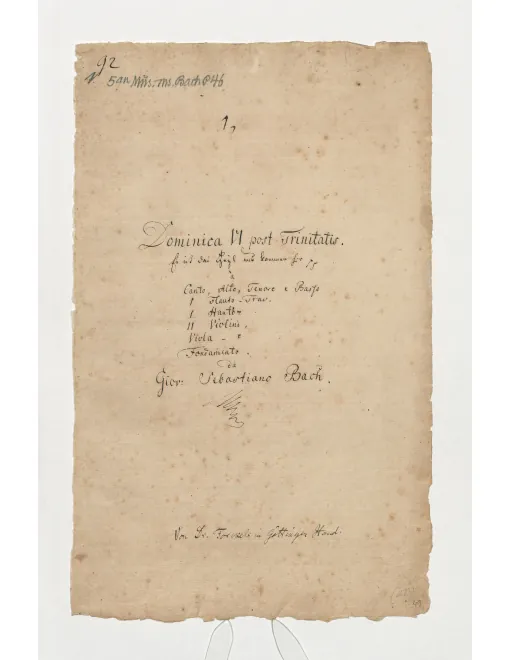 92
Mus. ms. Bach P 46
1,
Dominica VI post Trinitatis.
Es ist das Heyl uns kommen her
à
Canto, Alto, Tenore e Basso
1 Flauto Trav.
1 Hautb
II Violini
Viola e
Fondamento
da
Giov: Sebastiano Bach.
Von Hr. Forkels in Göttingen Hand.